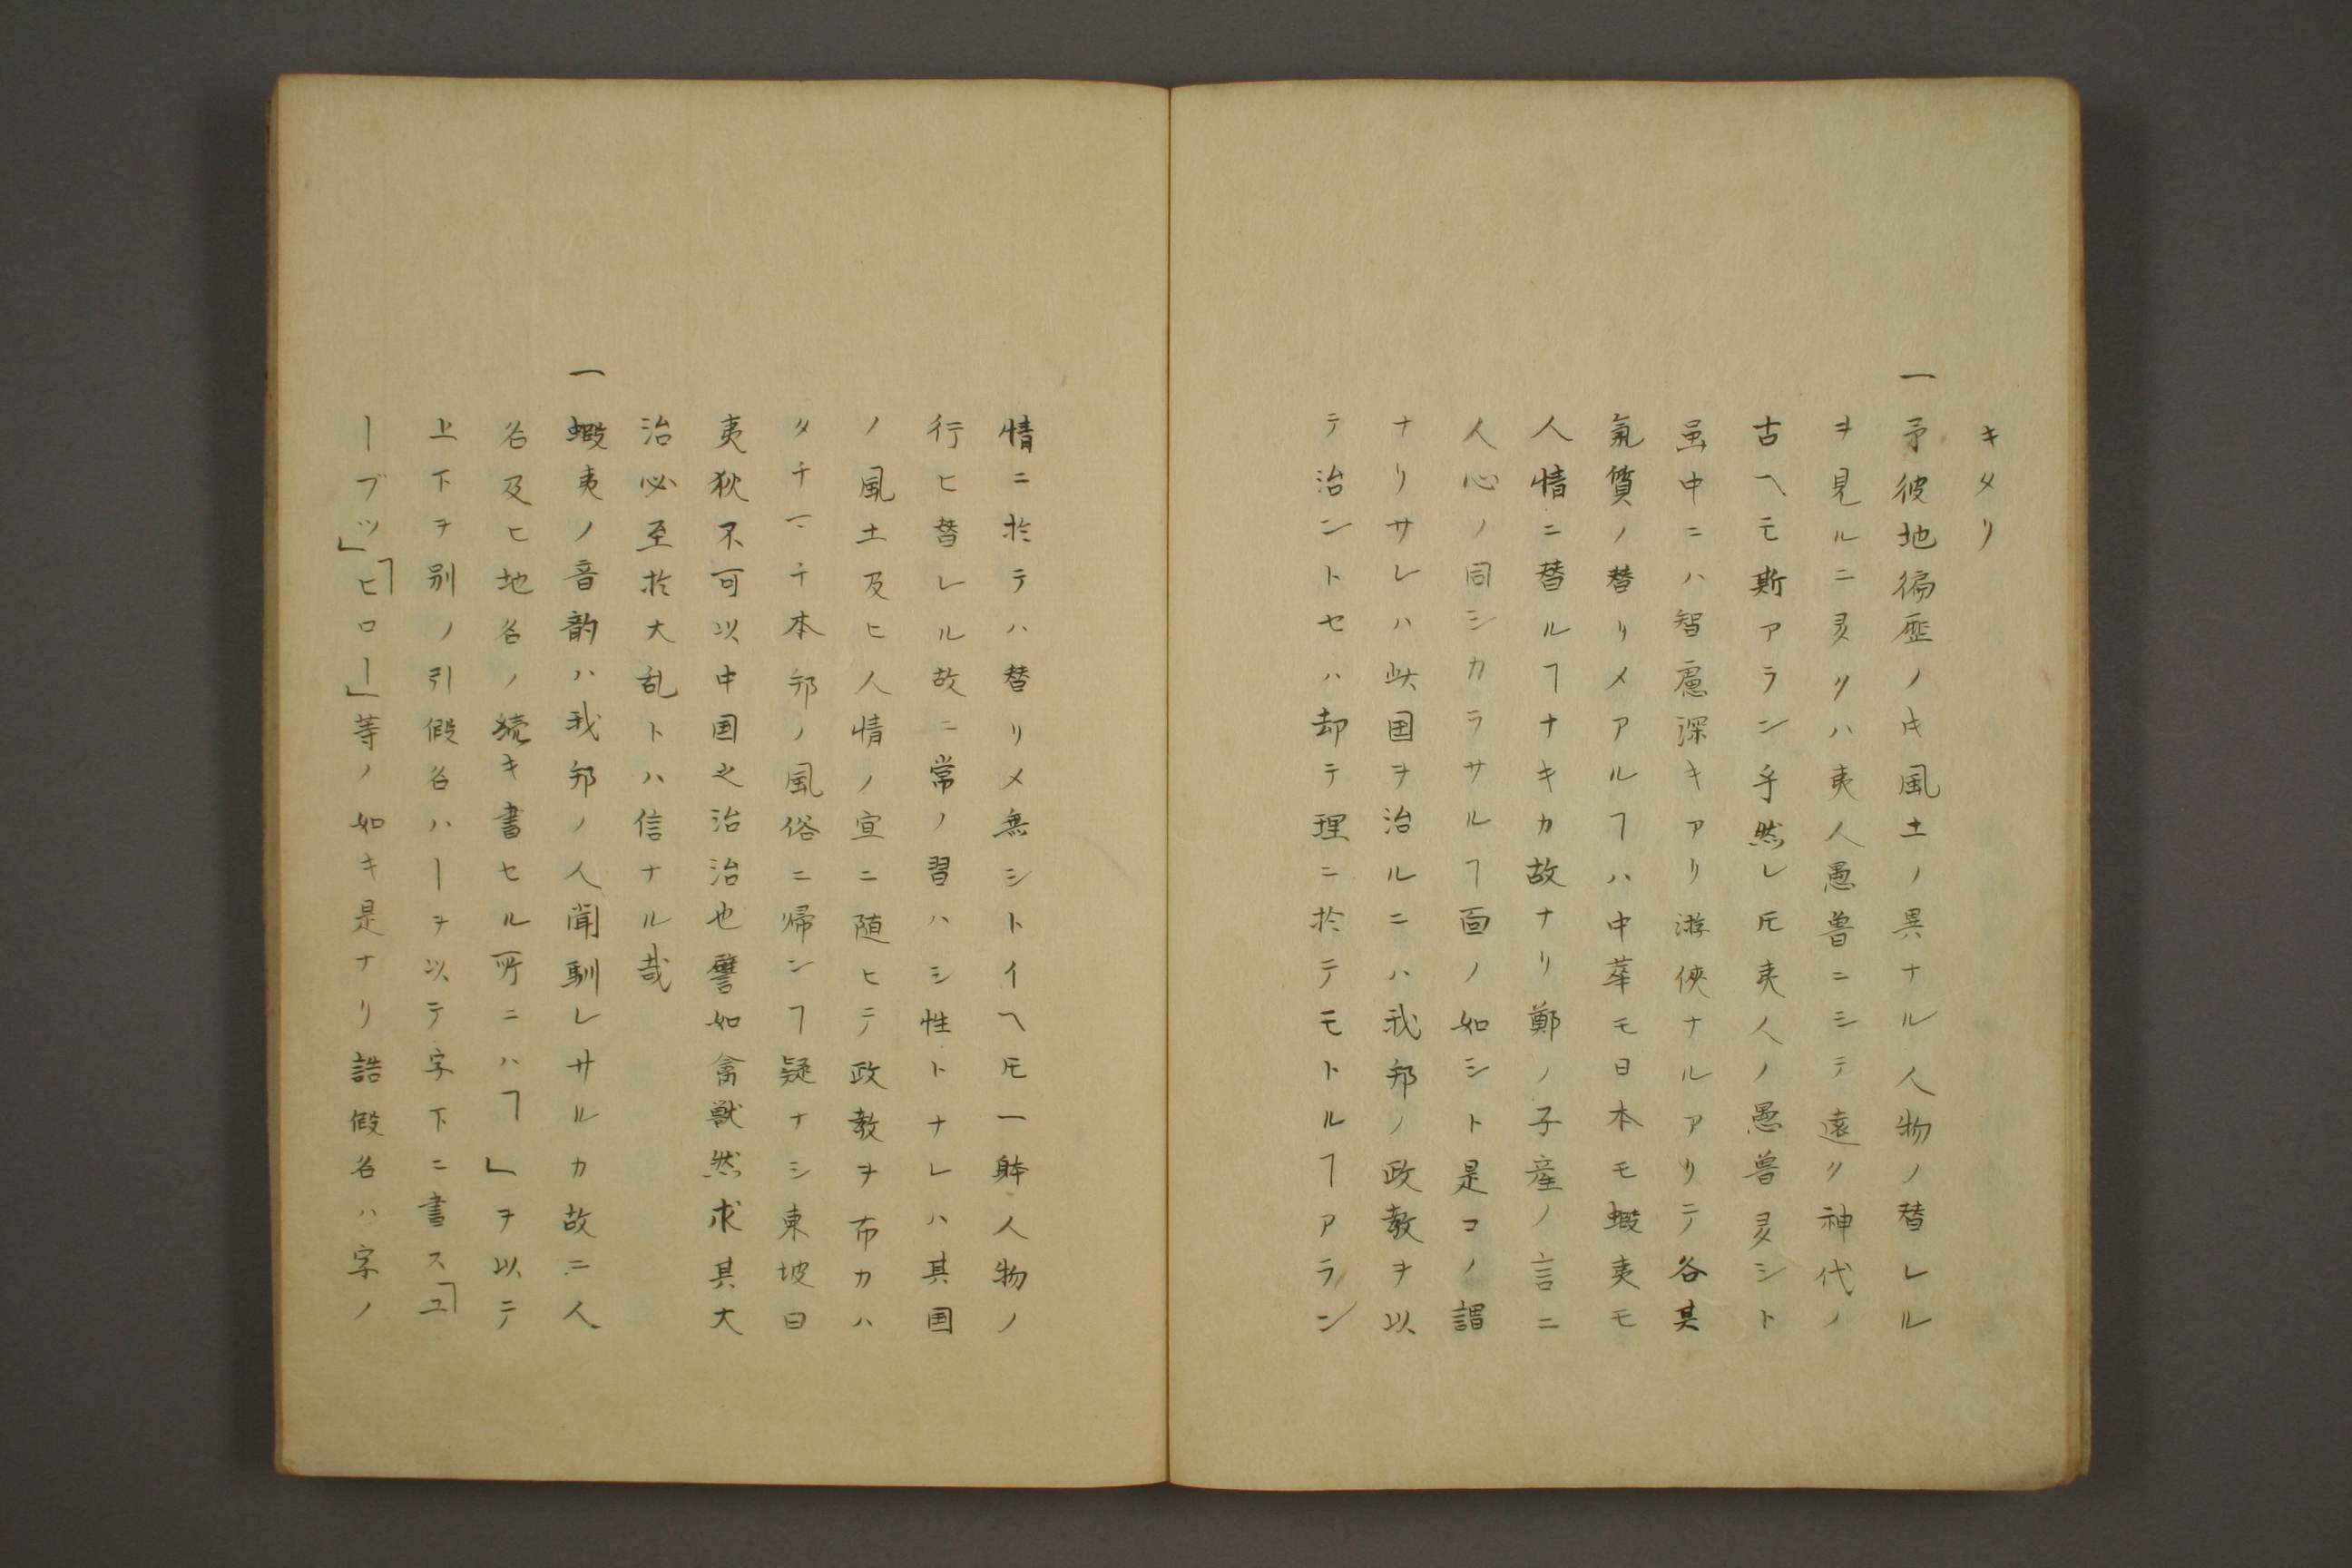 キタリ
一予彼地徧歴ノトキ風土ノ異ナル人物ノ替レル
ヲ見ルニ多クハ夷人愚魯ニシテ遠ク神代ノ
古ヘモ斯アラン乎然レ𪜈夷人ノ愚魯多シト
虽中ニハ智慮深キアリ游侠ナルアリテ各其
氣質ノ替リメアルヿハ中華モ日本モ蝦夷モ
人情ニ替ルヿナキカ故ナリ鄭ノ子産ノ言ニ
人心ノ同シカラサルヿ面ノ如シト是コノ謂
ナリサレハ此国ヲ治ルニハ我邦ノ政教ヲ以
テ治ントセハ却テ理ニ於テモトルヿアラン
情ニ於テハ替リメ無シトイヘ𪜈一躰人物ノ
行ヒ替レル故ニ常ノ習ハシ性トナレハ其国
ノ風土及ヒ人情ノ宜ニ随ヒテ政教ヲ布カハ
タチマチ本邦ノ風俗ニ帰ンヿ疑ナシ東坡曰
夷狄不可以中国之治治也譬如禽獣然求其大
治必至於大乱トハ信ナル哉
一蝦夷ノ音韵ハ我邦ノ人聞馴レサルカ故ニ人
名及ヒ地名ノ続キ書セル所ニハ「 」ヲ以テ
上下ヲ別ノ引假名ハーヲ以テ字下ニ書ス「ユ
ーブツ」「ヒロー」等ノ如キ是ナリ詰假名ハ字ノ